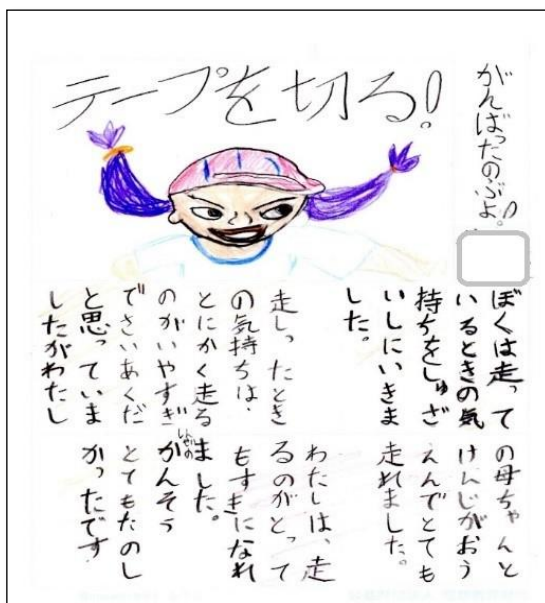 テープを切る!
がんばったのぶよ!!
ぼくは走って
いるときの気
持ちをしゅざ
いしにいきま
した。
走しったとき
の気持ちは、
とにかく走る
のがいやすぎ
でさいあくだ
と思っていま
したがわたし
の母ちゃんと
けんじがおう
えんでとても
走れました。
わたしは、走
るのがとって
もすきになれ
ました。
かんそう
とてもたのし
かったです